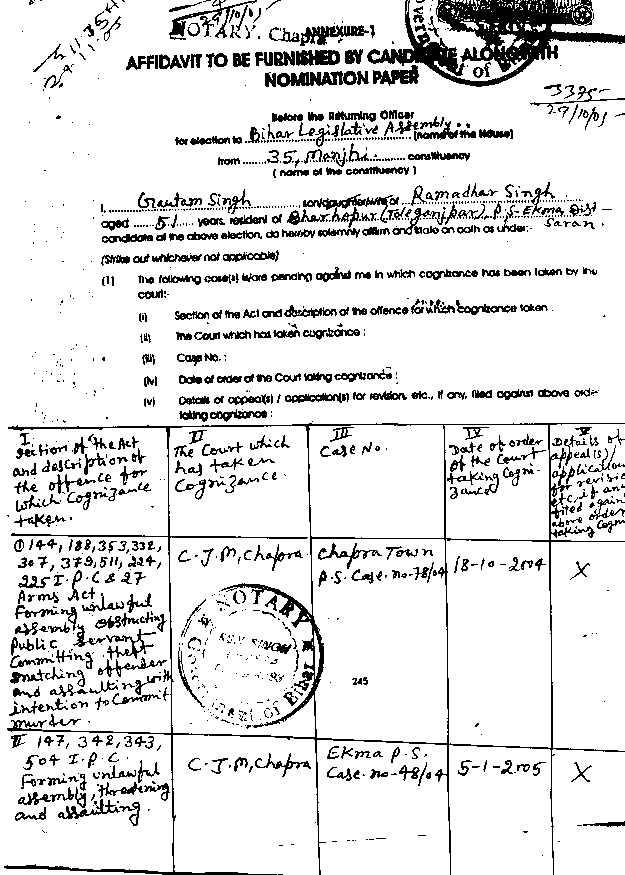 29/10/05
NOTARY, Chapra ANNEXURE-1
AFFIDAVIT TO BE FURNISHED BY CANDIDATE ALONGWITH
NOMINATION PAPER
3375
29/10/05
Before the Returning Officer
for election to Bihar Legislative Assembly (name of the House)
from 35, Manjhi constituency
( name of the constituency )
I, Gautam Singh son/daughter/wife of Ramadhar Singh
aged 51 years, resident of (Toleganjpar), P.S-Ekma Dist-
Saran.
candidate at the above election, do hereby solemnly affirm and state on oath as under:-
(Strike out whichever not applicable)
(1) The following case(s) is/are pending against me in which cognizance has been taken by the
court:-
(i) Section of the Act and description of the offence for which cognizance taken
(ii) The Court which has taken cognizance :
(iii) Case No. :
(iv) Date of order of the Court taking cognizance :
(v) Details of appeal(s) / application(s) for revision, etc., if any, filed against above orde
taking cognizance :
I
Section of the Act
and description of
the offence for
which Cognizance
taken.
II
The Court which
has taken
Cognizance.
III
Case No.
IV
Date of order
of the Court
taking Cogni-
zance
V
Details of
appeal(s)/
application
for revisio
etc, if any
filed again
above order
taking Cogn
① 144, 188, 353, 332,
307, 379, 511, 224,
225 I.P.C & 27
Arms Act
Forming unlawful
assembly obstructing
Public Servant
Committing theft
snatching offender
and assaulting with
intention to Commit
murder.
C.J.M, Chapra
Chapra Town
P.S. Case. no-78/04
18-10-2004
X
NOTARY
Government of Bihar
245
II 147, 342, 343,
504 I.P.C.
Forming unlawful
assembly, threatening
and assaulting.
C.J.M, Chapra
Ekma P.S.
Case. no-48/04
5-1-2005
X